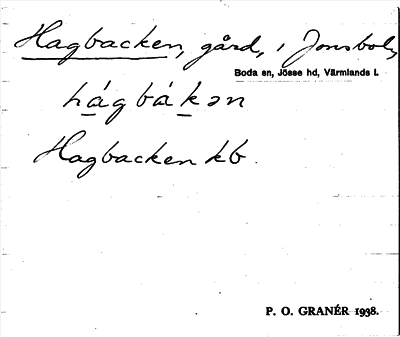 Hagbacken, gård, i Jonsbol,
Boda sn, Jösse hd, Värmlands l.
hágbákən
Hagbacken kb.
P. O. GRANÉR 1938.